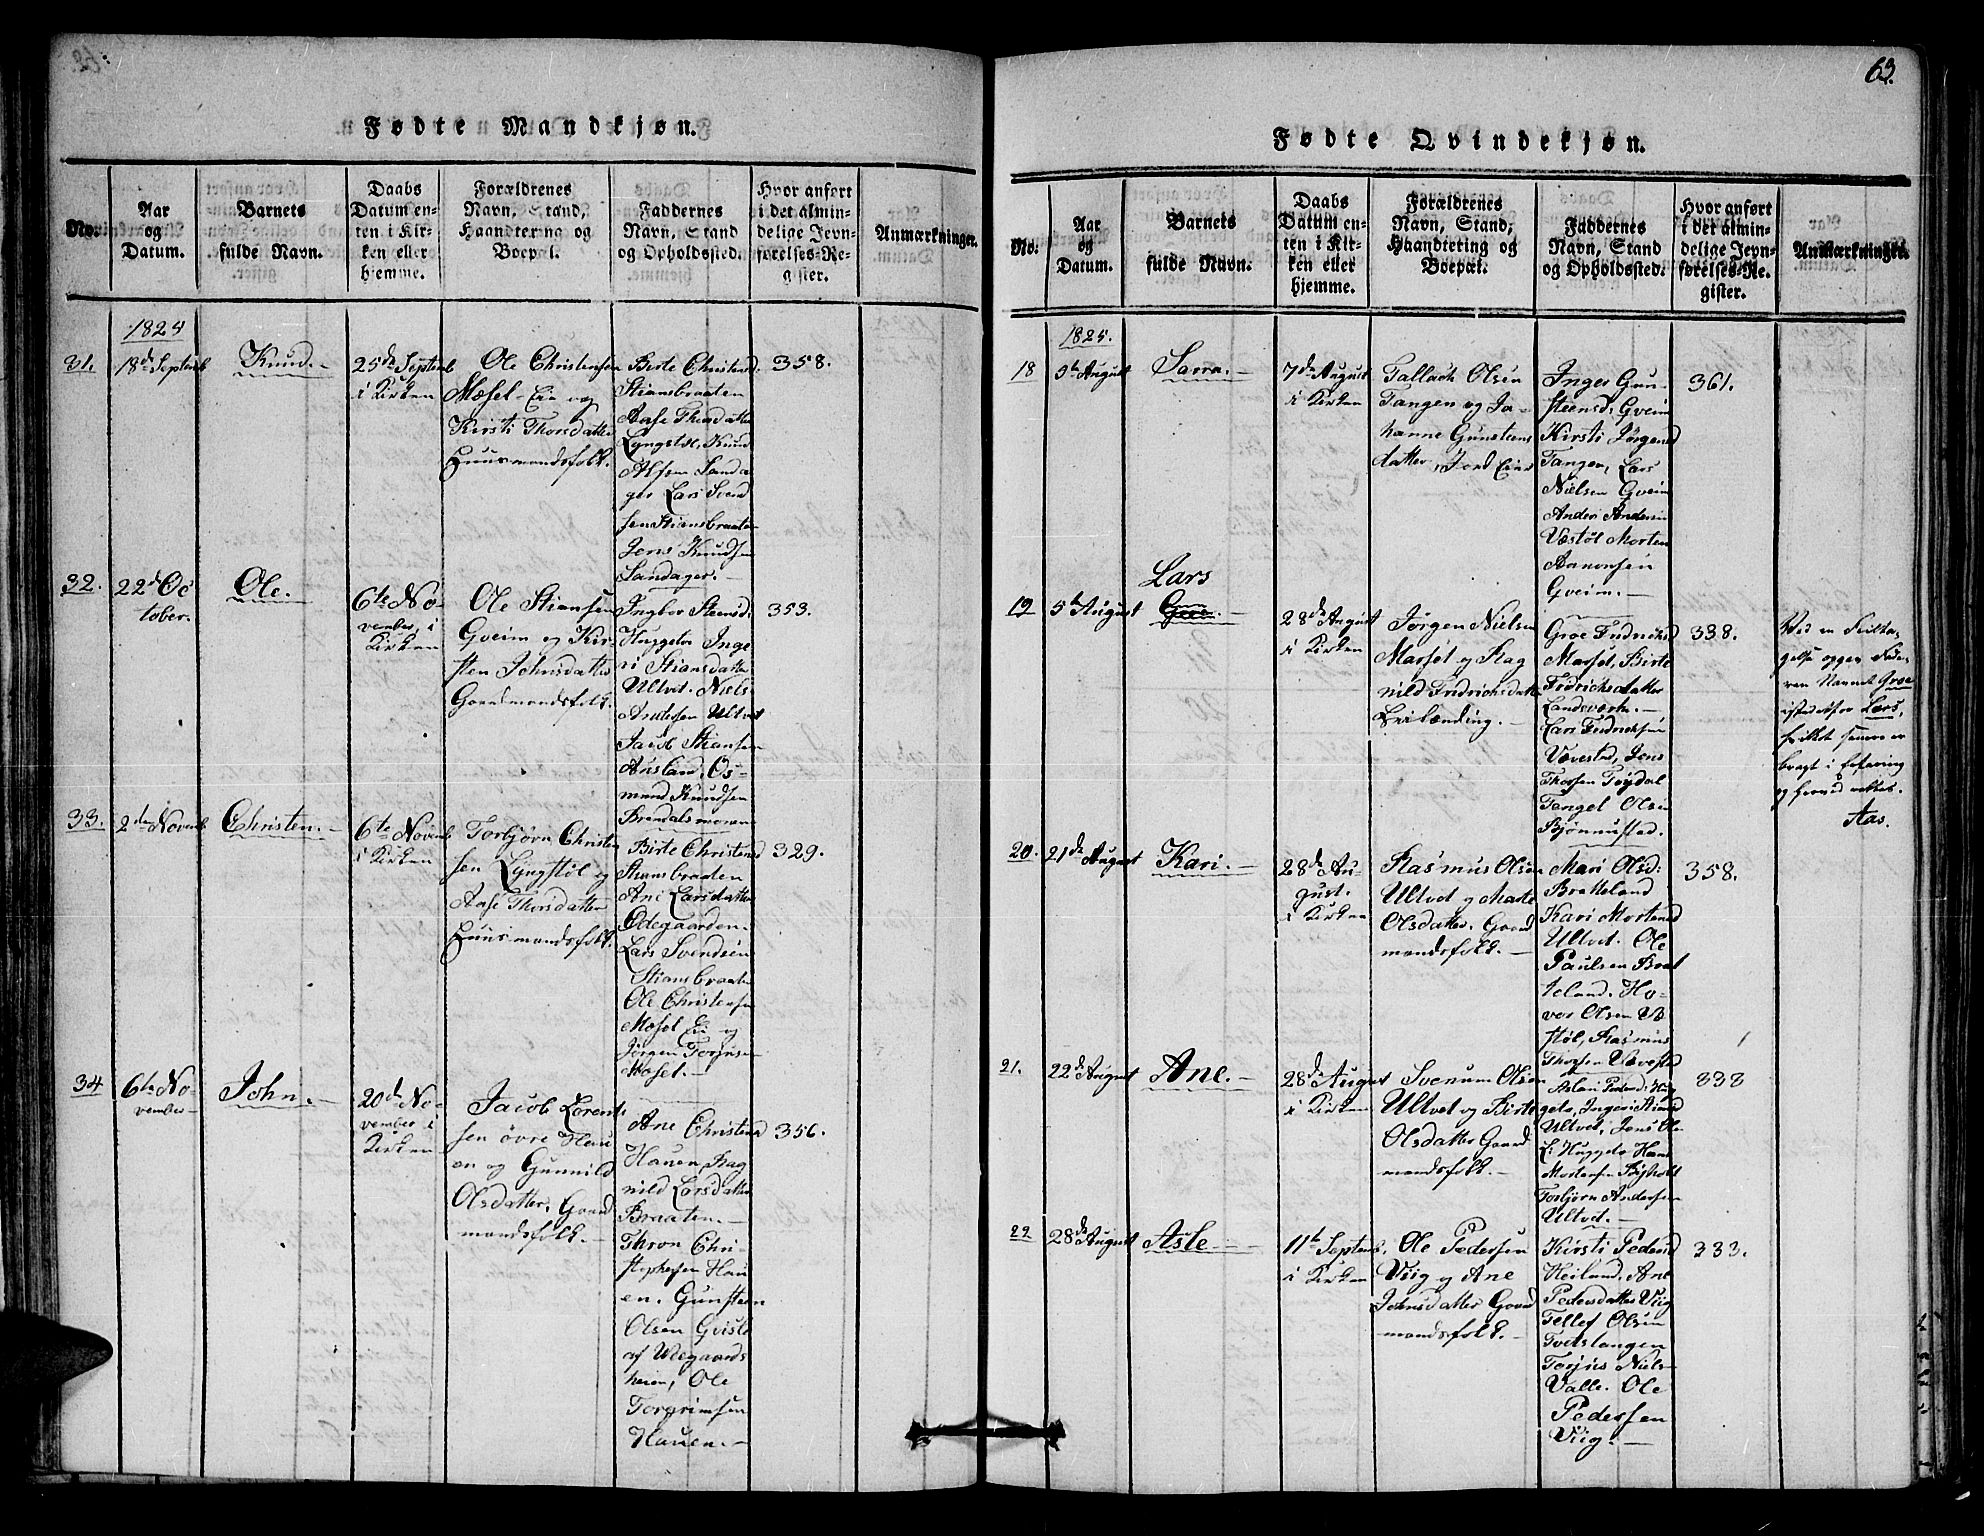 Fødte Mandkjøn.
No.
Aar
og
Datum.
Barnets
fulde Navn.
Daabs
Datum en-
ten i Kir-
ken eller
hjemme.
Forældrenes
Navn, Stand,
Haandtering og
Boepæl.
Faddernes
Navn, Stand
og Opholdssted.
Hvor anført
i det almin-
delige Jevn-
førelses-Re-
gister.
Anmærkninger.
1825
31.
18de Septemb
Knud.
25de Septemb
i Kirken
Ole Christensen
Mæsel-Eie og
Kirsti Thorsdatter
Huusmandsfolk.
Birte Christensd.
Stiansbraaten
Aase Thorsdatter
Lyngstøl, Knud
Alfsen Sanda
ger Lars Svend
sen Stiansbraate
Jens Knudsen
Sandager.
358.
32.
22de Oc
tober.
Ole.
6te No-
vember, i
Kirken
Ole Stiansen
Gveim og Kir-
sten Johnsdatter
Gaardmandsfolk.
Ingbor Steensd:
Huggeto Inge
ri Stiansdatter
Ultvet. Niels
Andersen Ultvet
Jacob Stiansen
Ausland, Os-
mund Knudsen
Brendalsmoen
353.
33.
2den Novemb
Christen.
6te Novemb
i Kirken
Torbjørn Christen
sen Lyngstøl og
Aase Thorsdatter
Huusmandsfolk.
Birte Christensd
Stiansbraaten
Ane Larsdatter
Ødegaarden.
Lars Svendsen
Stiansbraaten
Ole Christensen
Mæsel Ei og
Jørgen Torjusen
Mæsel.
329.
34
6te No-
vember
John.
20de No-
vember i
Kirken
Jacob Lorent
sen øvre Hau
en og Gunnild
Olsdatter, Gaard
mandsfolk.
Ane Christensd
Hauen, Rag
nild Larsdatter
Braaten.
Thron Chri-
stophersen Hau
en. Gunsteen
Olsen Gviste
af Weegaards
heien, Ole
Torgrimsen
Hauen.
356.
63.
Fødte Qvindekjøn.
No.
Aar
og
Datum.
Barnets
fulde Navn.
Daabs
Datum en-
ten i Kir-
ken eller
hjemme.
Forældrenes
Navn, Stand,
Haandtering og
Boepæl.
Faddernes
Navn, Stand
og Opholdssted.
Hvor anført
i det almin-
delige Jevn-
førelses-Re-
gister.
Anmærkninger.
1825.
18
August
Sarra.
7de August
i Kirken
Tallach Olsen
Tangen og Jo-
hanne Gunsteens
datter, Jord Eier
Inger Gun-
steensd: Gveim
Kirsti Jørgensd
Tangen, Lars
Nielsen Gveim
Anders Andersen
Væstøl Morten
Aanonsen
Gveim.
361.
19
5te August
Lars
Groe.
28de August
i Kirken
Jørgen Nielsen
Marsøl og Rag
nild Fridrichsdatter
Leilænding.
Groe Fridrichsd
Marsøl, Birte
Fidrichsdatter
Landeværk.
Lars Fridrichsen
Vævestad, Jens
Thorsen Trydal
Tangel Olsen
Bjønnustad.
338.
Ved en Feilta-
gelse opgav Fade-
ren Navnet Groe
istedetfor Lars,
hvilket senere er
bragt i erfaring
og herved rettes.
Aas.
20.
21de August
Kari.
28de Au-
gust.
i Kirken
Rasmus Olsen
Ultvet og Marte
Olsdatter. Gaard
mandsfolk.
Mari Olsd:
Bratteland
Kari Mortensd
Ultvet. Ole
Paulsen Brat
teland. Ho-
vor Olsen Væ
støl, Rasmus
Thorsen Vævestad
358.
21.
22de August
Ane.
28de August
i Kirken
Svenum Olsen
Ultvet og Birte
Olsdatter Gaard
mandsfolk.
Aslau Pedersd: Hug
geto, Ingeri Stiansd
Ultvet, Jens Ole
Huggeto Hans
Mortensen Bjyholt
Torbjørn Andersen
Ultvet.
338
22
28de August
Asle
11te Septemb.
i Kirken
Ole Pedersen
Viig og Ane
Johnsdatter Gaard
mandsfolk.
Kirsti Pedersd
Heiland, Ane
Pedersdatter Viig
Tellef Olsen
Tvetslangen
Torjus Niels
Valle. Ole
Pedersen
Viig.
333.